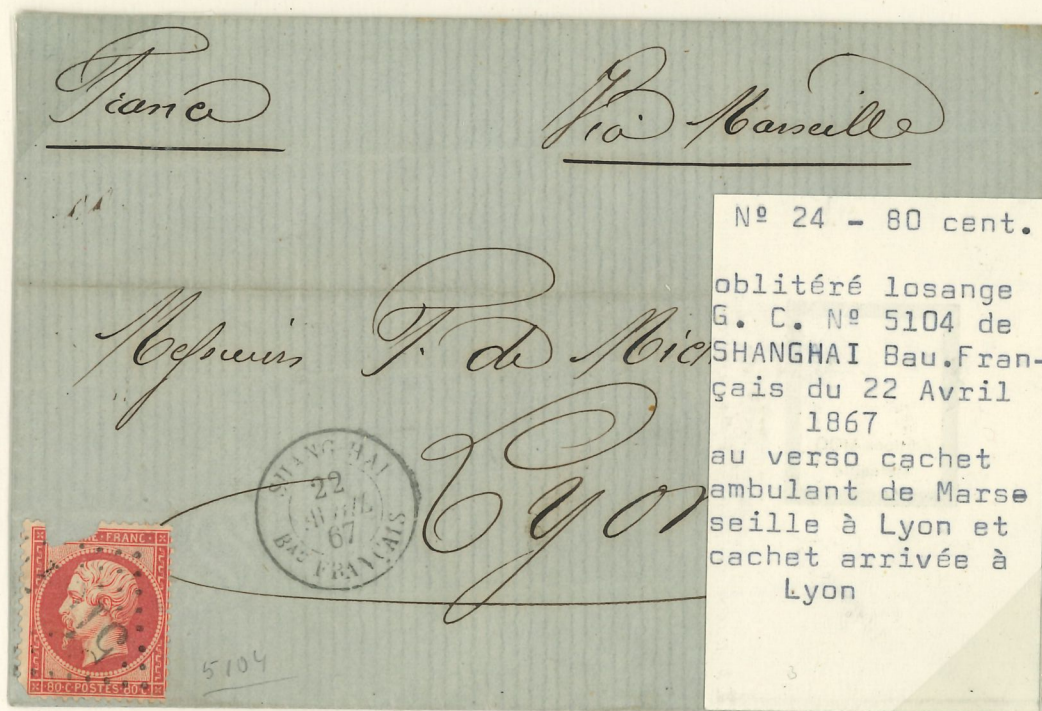 France
Via Marseille
Messieurs F. de
Lyon
SHANG-HAI
22
AVRIL
67
BAU FRANÇAIS
FRANC
80 C POSTES 80 C
5104
Nº 24 - 80 cent.
oblitéré losange
G. C. Nº 5104 de
SHANGHAI Bau.Fran-
çais du 22 Avril
1867
au verso cachet
ambulant de Marse
seille à Lyon et
cachet arrivée à
Lyon